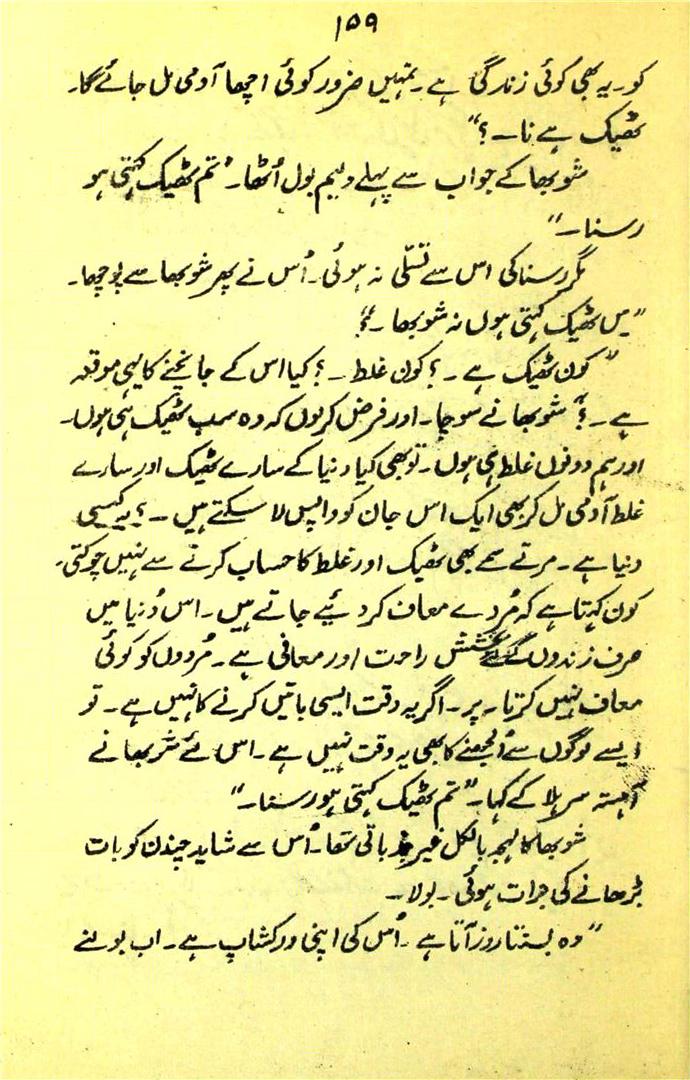 ۱۵۹
کو۔ یہ بھی کوئی زندگی ہے۔ تمہیں ضرور کوئی اچھا آدمی مل جائے گا۔
ٹھیک ہے نا۔ ؟"
شوبھا کے جواب سے پہلے ولیم بول اُٹھا۔ "تم ٹھیک کہتی ہو
رسنا۔"
مگر رسنا کی اس سے تسلّی نہ ہوئی۔ اُس نے پھر شوبھا سے پوچھا۔
"میں ٹھیک کہتی ہوں نہ شوبھا۔ ؟"
"کون ٹھیک ہے۔ ؟ کون غلط۔ ؟ کیا اس کے جانچنے کا یہی موقعہ
ہے۔ ؟" شوبھا نے سوچا۔ اور فرض کر لوں کہ وہ سب ٹھیک ہی ہوں۔
اور ہم دونوں غلط ہی ہوں۔ تو بھی کیا دنیا کے سارے ٹھیک اور سارے
غلط آدمی مل کر بھی ایک اس جان کو واپس لا سکتے ہیں۔ ؟ یہ کیسی
دنیا ہے۔ مرتے سمے بھی ٹھیک اور غلط کا حساب کرنے سے نہیں چوکتی۔
کون کہتا ہے کہ مُردے معاف کر دئیے جاتے ہیں۔ اس دُنیا میں
صرف زندوں راحت اور معافی ہے۔ مُردوں کو کوئی
معاف نہیں کرتا۔ پر۔ اگر یہ وقت ایسی باتیں کرنے کا نہیں ہے۔ تو
ایسے لوگوں سے اُلجھنے کا بھی یہ وقت نہیں ہے۔ اس لئے شوبھا نے
آہستہ سر ہلا کے کہا۔ "تم ٹھیک کہتی ہو رسنا۔"
شوبھا کا لہجہ بالکل غیر جذباتی تھا۔ اُس سے شاید چندن کو بات
بڑھانے کی جرات ہوئی۔ بولا۔
"وہ بسنتا روز آتا ہے۔ اُس کی اپنی ورکشاپ ہے۔ اب بولنے